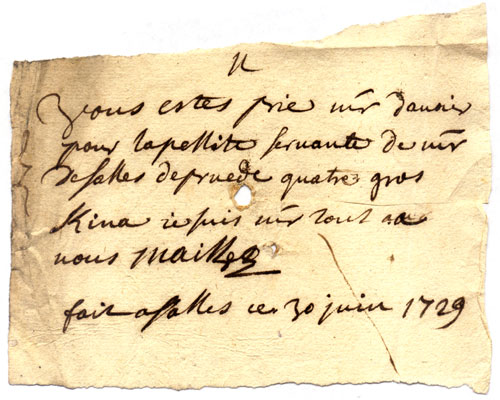 vous estes prie mr dauoir
pour lapettite seruante de mr
desalles quatre gros
Kina ie suis mr tout a
vous maillez
fait asalles ce 30 juin 1729